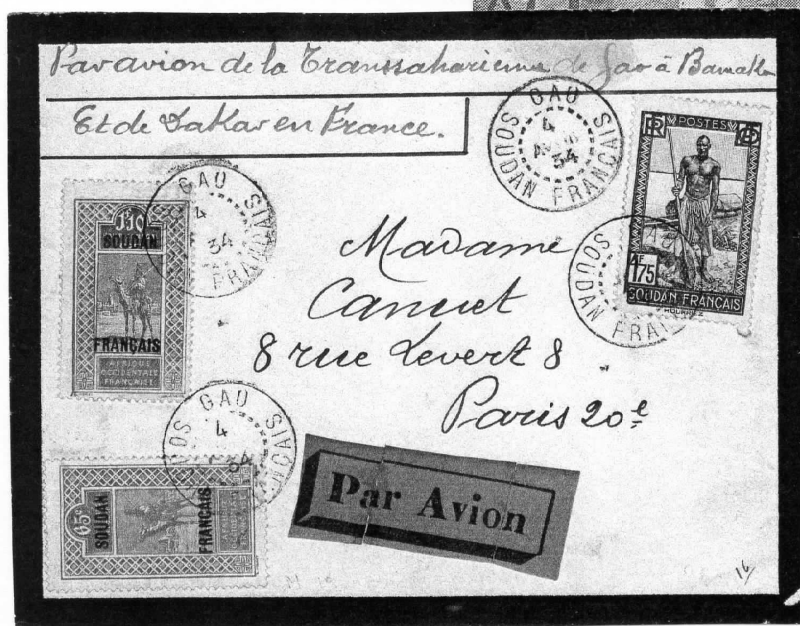 Par avion de la Transsaharienne de Gao à Bamako
Et de Dakar en France.
GAO
4
34
SOUDAN FRANÇAIS
RF POSTES RF
1F75
SOUDAN FRANÇAIS
GAO
4
34
FRANÇAIS
SOUDAN
FRANÇAIS
AFRIQUE
OCCIDENTALE
FRANÇAISE
SOUDAN FRANÇAIS
Madame
Canuet
8 rue Levert 8
Paris 20e
GAO
4
34
65c
SOUDAN
FRANÇAIS
Par Avion
16